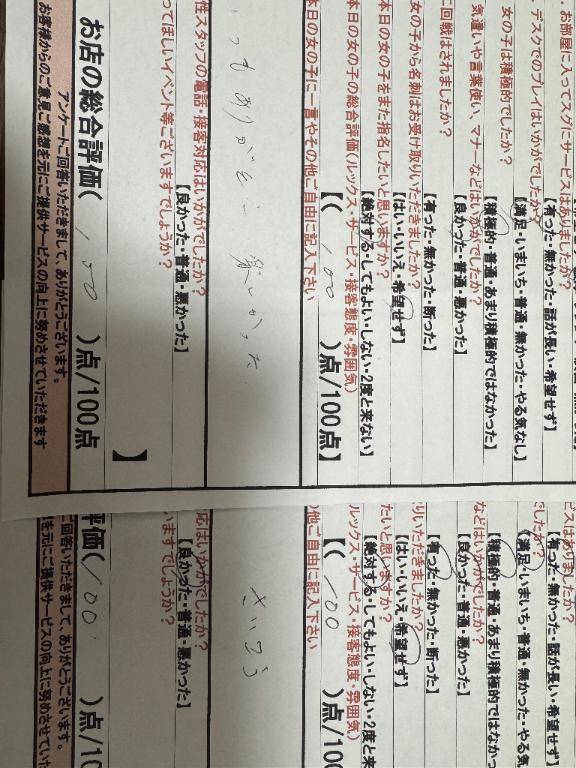 お部屋に入ってスグにサービスはありましたか?
【有った・無かった・話が長い・希望せず】
デスンでのプレイはいかがでしたか?
【満足・いまいち・普通・無かった・やる気なし】
女の子は積極的でしたか?
【積極的・普通・あまり積極的ではなかった】
気遣いや言葉使い、マナーなどはいかがでしたか?
【良かった・普通・悪かった】
女の子から名刺はお受け取りいただきましたか?
【有った・無かった・断った】
ご回戦はされましたか?
【はい・いいえ・希望せず】
本日の女の子をまた指名したいと思いますか?
【絶対する・してもよい・しない・2度と来ない】
本日の女の子の総合評価(ルックス・サービス・接客態度・雰囲気)
【( 100 )点/100点】
本日の女の子に一言やその他ご自由に記入下さい
いつもありがとう
楽しかった
性スタッフの電話・接客対応はいかがでしたか?
【良かった・普通・悪かった】
ってほしいイベント等ございますでしょうか?
】
お店の総合評価( 100 )点/100点
アンケートご回答いただきまして、ありがとうございます。
お客様からのご意見ご感想を元にご提供サービスの向上に努めさせていただきます
ビスはありましたか?
【有った・無かった・話が長い・希望せず】
でしたか?
【満足・いまいち・普通・無かった・やる気
【積極的・普通・あまり積極的ではなかっ
などはいかがでしたか?
【良かった・普通・悪かった】
りいただきましたか?
【有った・無かった・断った】
【はい・いいえ・希望せず】
たいと思いますか?
【絶対する・してもよい・しない・2度と来
ルックス・サービス・接客態度・雰囲気)
【( 100 )点/100
の他ご自由に記入下さい
さいこう
応はいかがでしたか?
【良かった・普通・悪かった】
いますでしょうか?
評価( 100 )点/10
ご回答いただきまして、ありがとうございます。
を元にご提供サービスの向上に努めさせていた